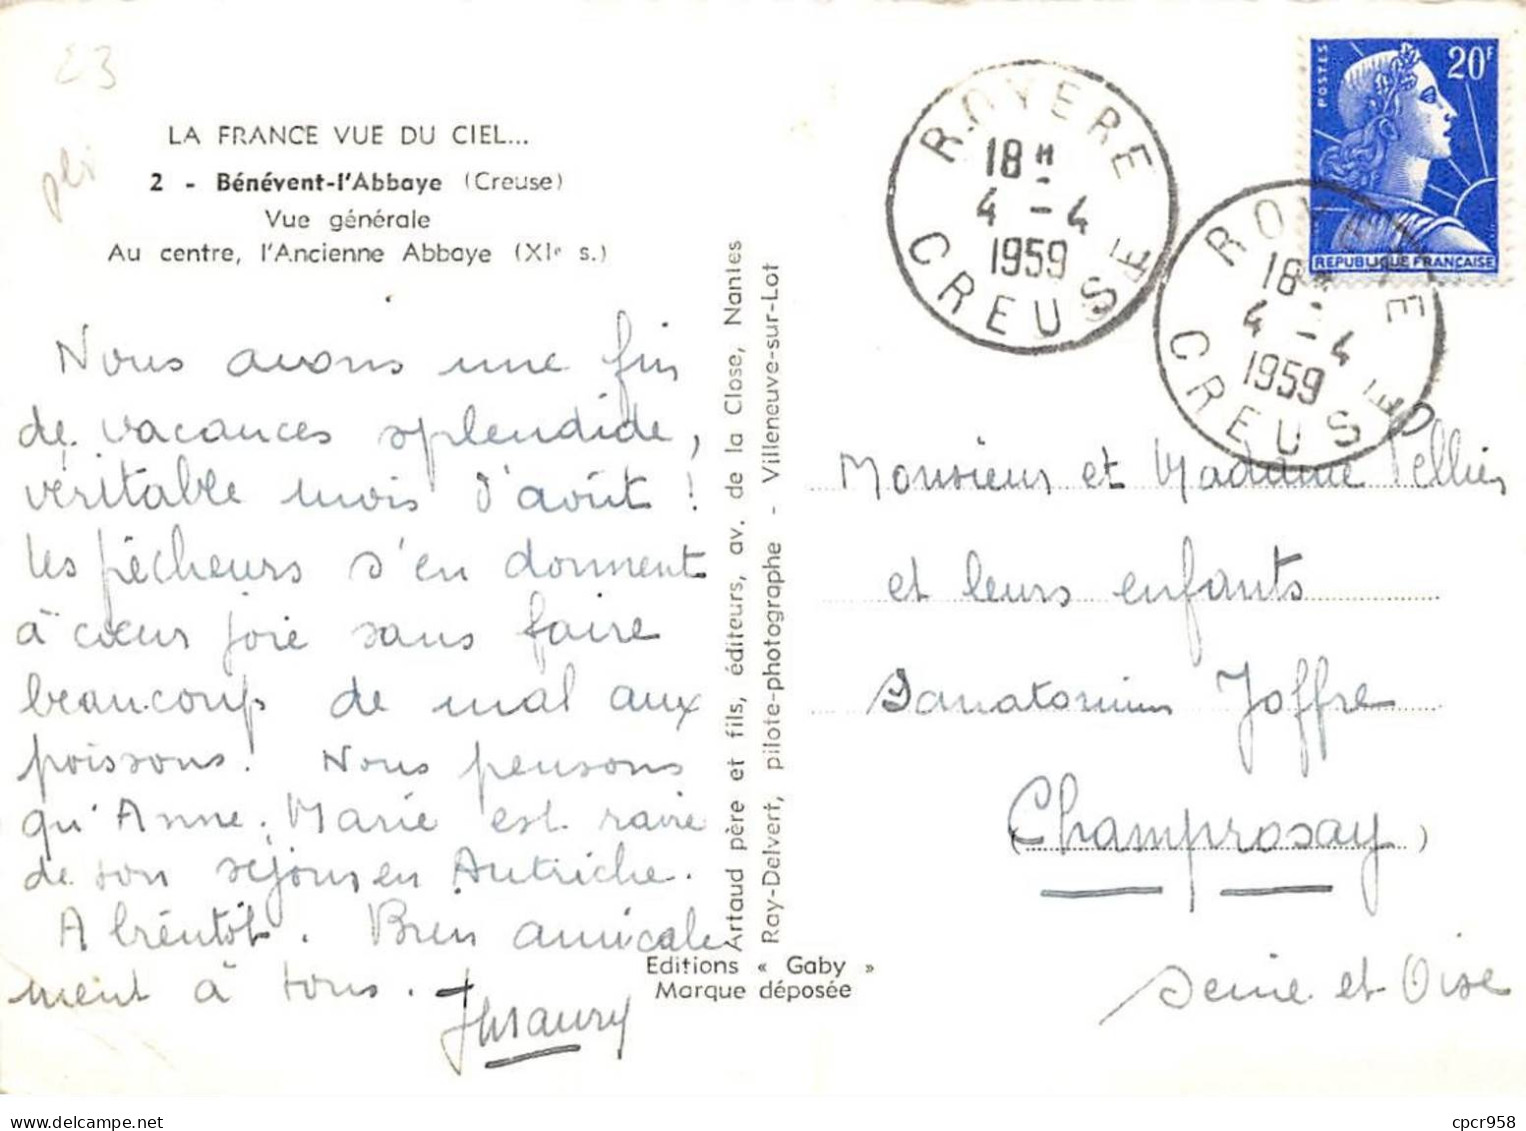 E3
pli
LA FRANCE VUE DU CIEL...
2 - Bénévent-l'Abbaye (Creuse)
Vue générale
Au centre, l'Ancienne Abbaye (XIe s.)
Nous avons une fin
de vacances splendide,
véritable mois d'août !
Les pêcheurs s'en donnent
à cœur joie sans faire
beaucoup de mal aux
poissons ! Nous pensons
qu'Anne-Marie est ravie
de son séjour en Autriche.
A bientôt. Bien amicale
ment à tous.
Artaud père et fils, éditeurs, av. de la Close, Nantes
Ray-Delvert, pilote-photographe - Villeneuve-sur-Lot
Editions « Gaby »
Marque déposée
ROYERE
18 H
4 - 4
1959
CREUSE
ROYERE
18 H
4 - 4
1959
CREUSE
POSTES
20F
REPUBLIQUE FRANÇAISE
Monsieur et Madame Tellier
et leurs enfants
Sanatorium Joffre
(Champrosay)
Seine et Oise
cpcr958